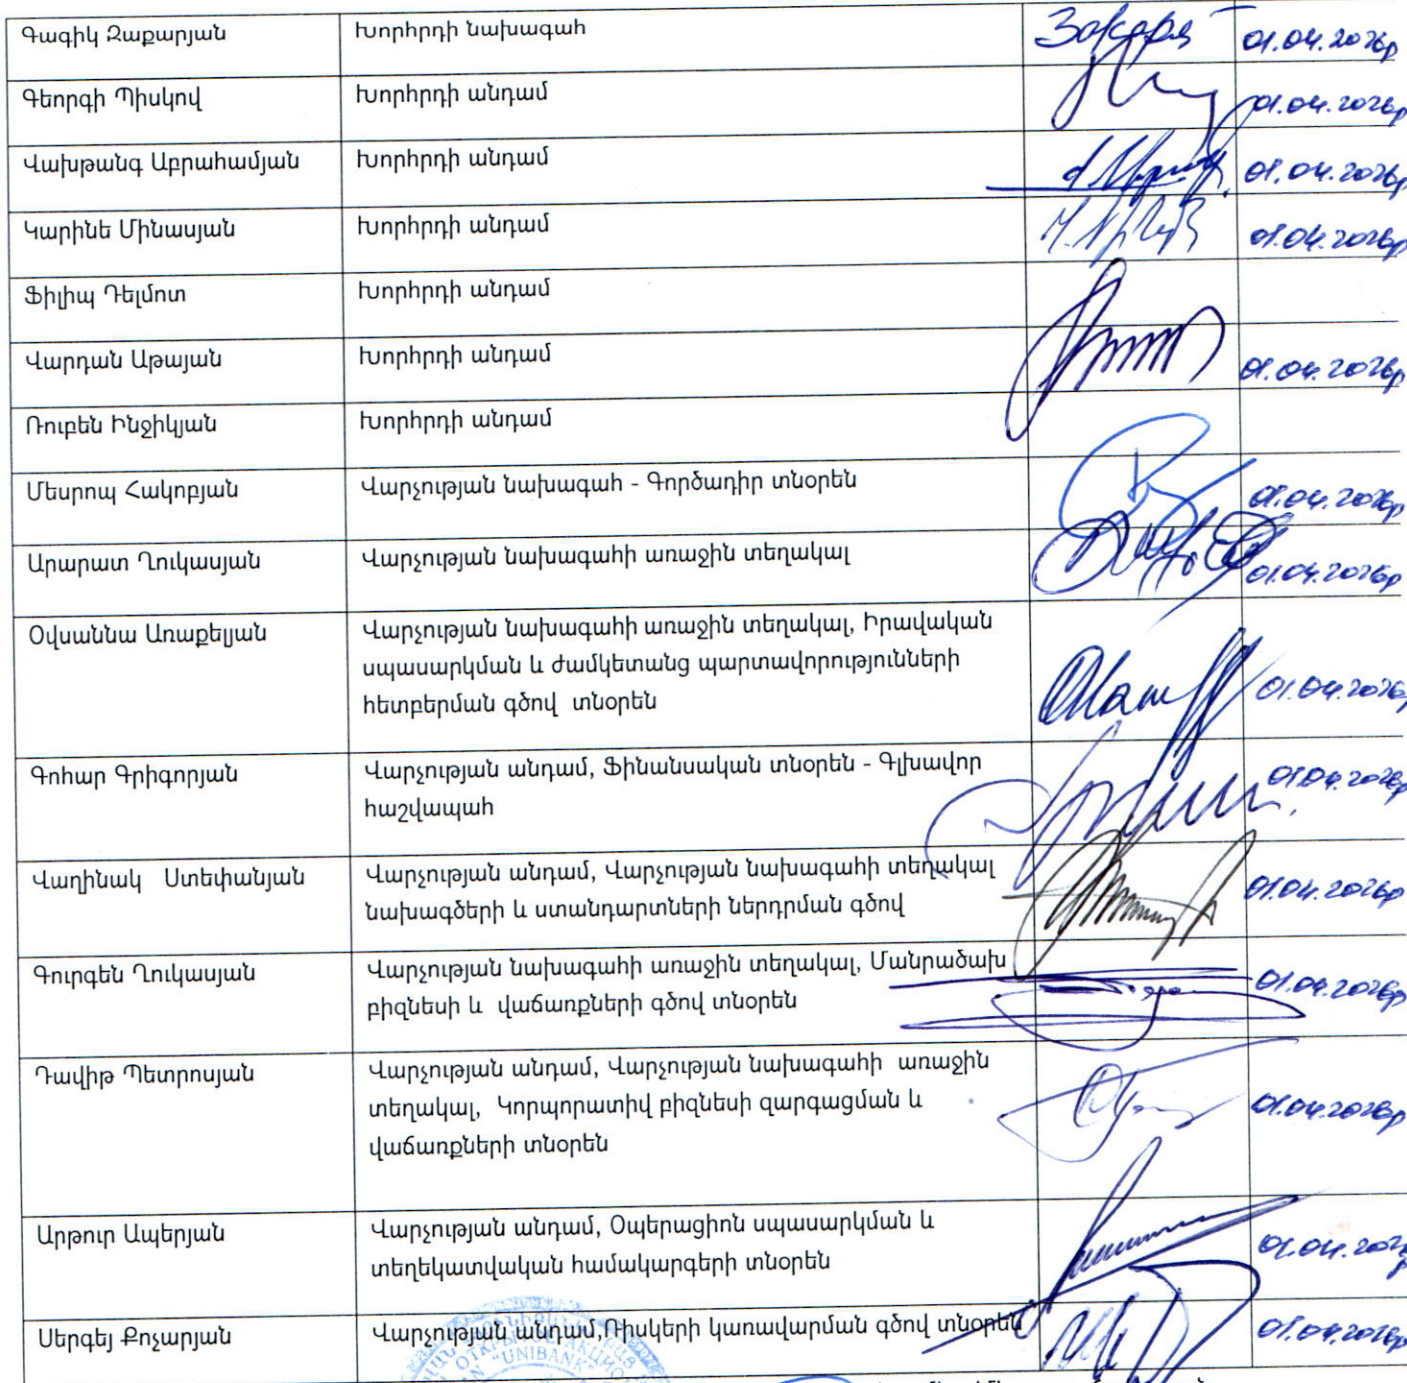 Գագիկ Զաքարյան Խորհրդի նախագահ 01.04.2026թ
Գեորգի Պիսկով Խորհրդի անդամ 01.04.2026թ
Վախթանգ Աբրահամյան Խորհրդի անդամ 01.04.2026թ
Կարինե Մինասյան Խորհրդի անդամ 01.04.2026թ
Ֆիլիպ Դելմոտ Խորհրդի անդամ
Վարդան Աթայան Խորհրդի անդամ 01.04.2026թ
Ռուբեն Ինջիկյան Խորհրդի անդամ
Մեսրոպ Հակոբյան Վարչության նախագահ - Գործադիր տնօրեն 01.04.2026թ
Արարատ Ղուկասյան Վարչության նախագահի առաջին տեղակալ 01.04.2026թ
Օվսաննա Առաքելյան Վարչության նախագահի առաջին տեղակալ, Իրավական
սպասարկման և ժամկետանց պարտավորությունների
հետբերման գծով տնօրեն 01.04.2026
Գոհար Գրիգորյան Վարչության անդամ, Ֆինանսական տնօրեն - Գլխավոր
հաշվապահ 01.04.2026թ
Վաղինակ Ստեփանյան Վարչության անդամ, Վարչության նախագահի տեղակալ
նախագծերի և ստանդարտների ներդրման գծով 01.04.2026թ
Գուրգեն Ղուկասյան Վարչության նախագահի առաջին տեղակալ, Մանրածախ
բիզնեսի և վաճառքների գծով տնօրեն 01.04.2026թ
Դավիթ Պետրոսյան Վարչության անդամ, Վարչության նախագահի առաջին
տեղակալ, Կորպորատիվ բիզնեսի զարգացման և 01.04.2026թ
վաճառքների տնօրեն
Արթուր Ապերյան Վարչության անդամ, Օպերացիոն սպասարկման և
տեղեկատվական համակարգերի տնօրեն 01.04.202
Սերգեյ Քոչարյան Վարչության անդամ,Ռիսկերի կառավարման գծով տնօրեն 01.04.2026թ
"UNIBANK"